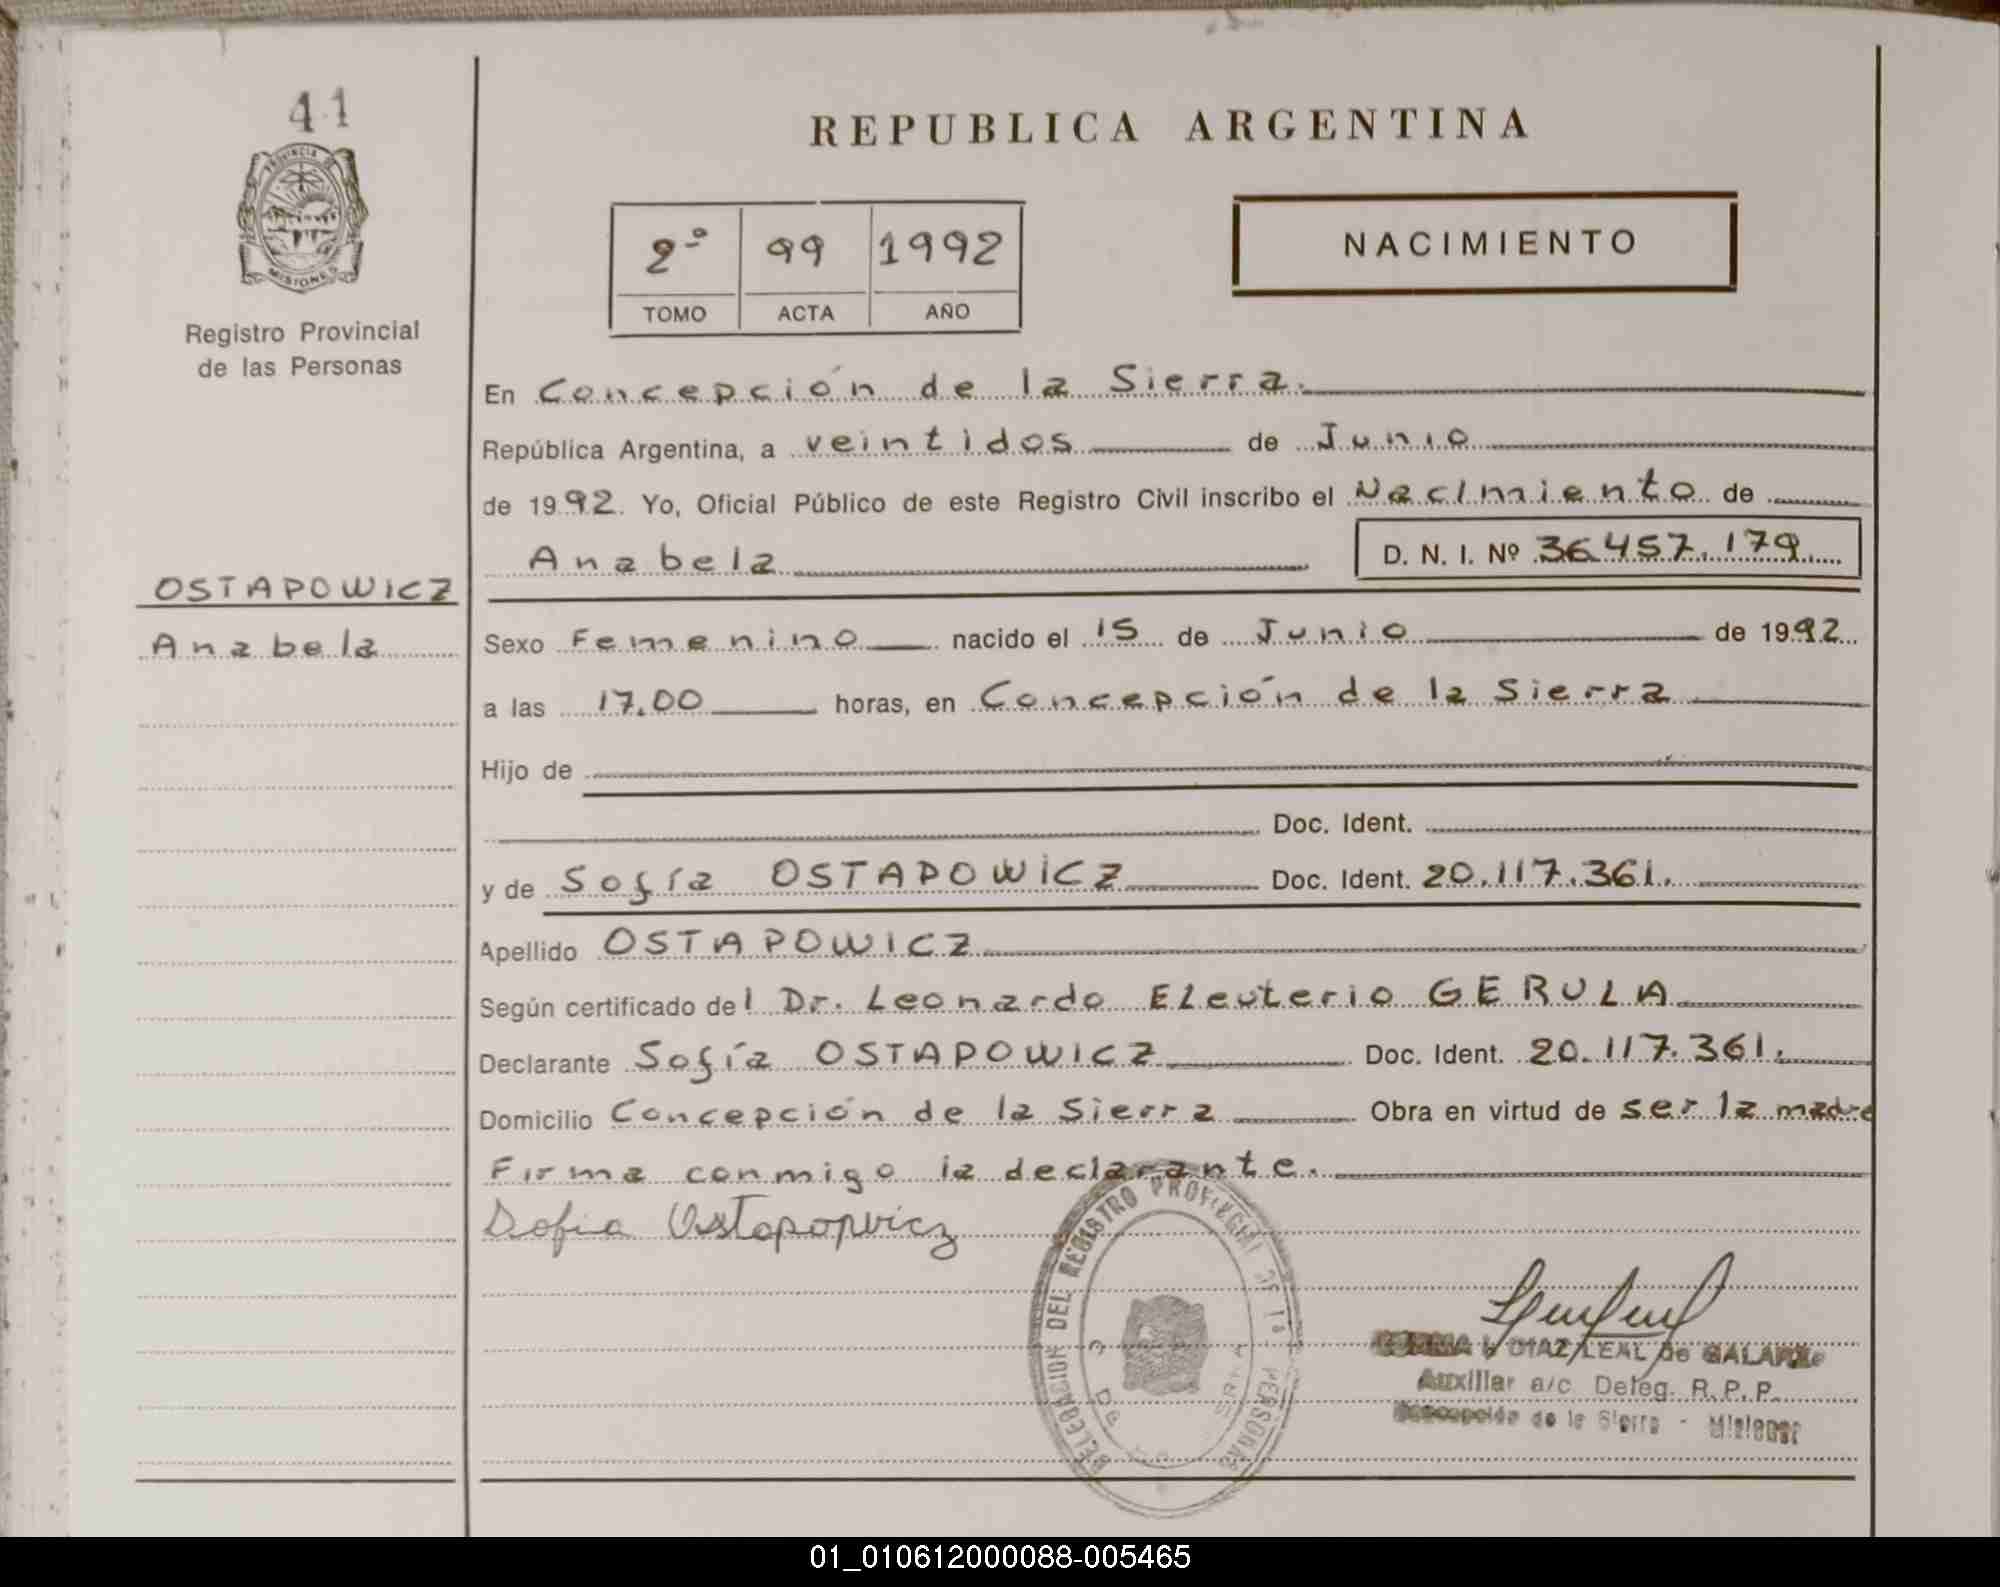 41
PROVINCIA DE
MISIONES
Registro Provincial
de las Personas
OSTAPOWICZ
Anabela
REPUBLICA ARGENTINA
2º 99 1992
TOMO ACTA AÑO
NACIMIENTO
En Concepción de la Sierra.
República Argentina, a veintidos de Junio
de 1992. Yo, Oficial Público de este Registro Civil inscribo el Nacimiento de
Anabela D. N. I. Nº 36.457.179.
Sexo Femenino nacido el 15 de Junio de 1992
a las 17.00 horas, en Concepción de la Sierra
Hijo de
Doc. Ident.
y de Sofía OSTAPOWICZ Doc. Ident. 20.117.361.
Apellido OSTAPOWICZ
Según certificado del Dr. Leonardo Eleuterio GERULA
Declarante Sofía OSTAPOWICZ Doc. Ident. 20.117.361.
Domicilio Concepción de la Sierra Obra en virtud de ser la madre
Firma conmigo la declarante.
Sofia Ostapopvicz
DELEGACION DEL REGISTRO PROVINCIAL DE LAS PERSONAS
DIAZ LEAL de GALARZA
Auxiliar a/c Deleg. R. P. P.
Concepción de la Sierra - Misiones
01_010612000088-005465